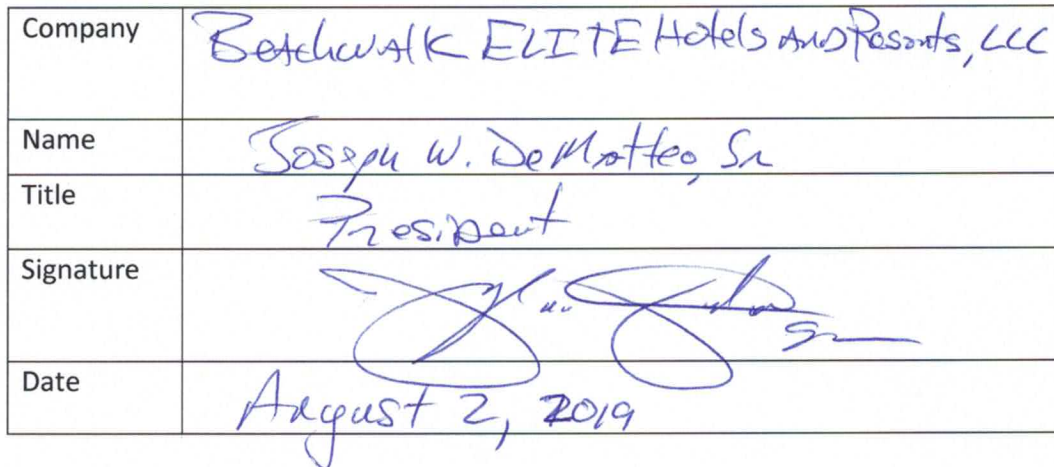 Company BeachwalK ELITE Hotels And Resorts, LLC
Name Joseph W. DeMatteo, Sr
Title President
Signature
Date August 2, 2019